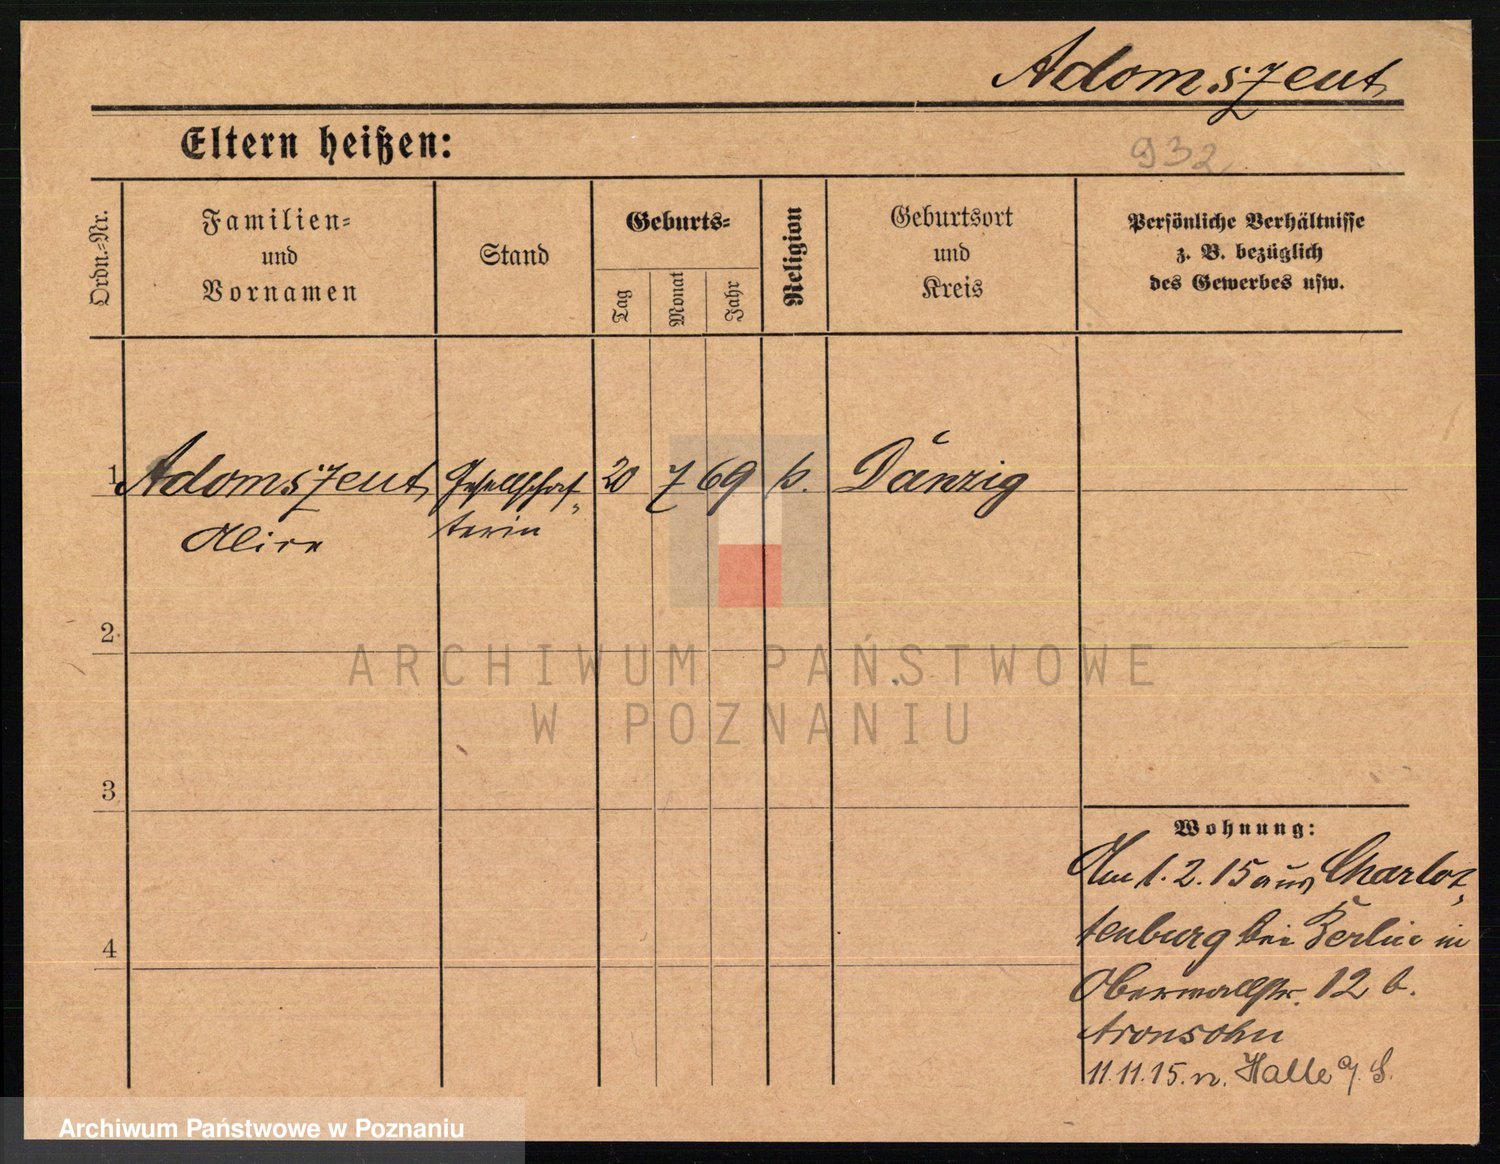 Adomszent
Eltern heißen:
932
Ordn.-Nr.
Familien-
und
Vornamen
Stand
Geburts-
Tag
Monat
Jahr
Religion
Geburtsort
und
Kreis
Persönliche Verhältnisse
z. B. bezüglich
des Gewerbes usw.
1 Adomszent Gesellschaf- 20 7 69 k. Danzig
Alice terin
2
ARCHIWUM PAŃSTWOWE
W POZNANIU
3
Wohnung:
Am 1. 2. 15 aus Charlot-
tenburg bei Berlin in
4
Oberwallstr. 12 b.
Aronsohn
11.11.15. n. Halle a/ S.
Archiwum Państwowe w Poznaniu